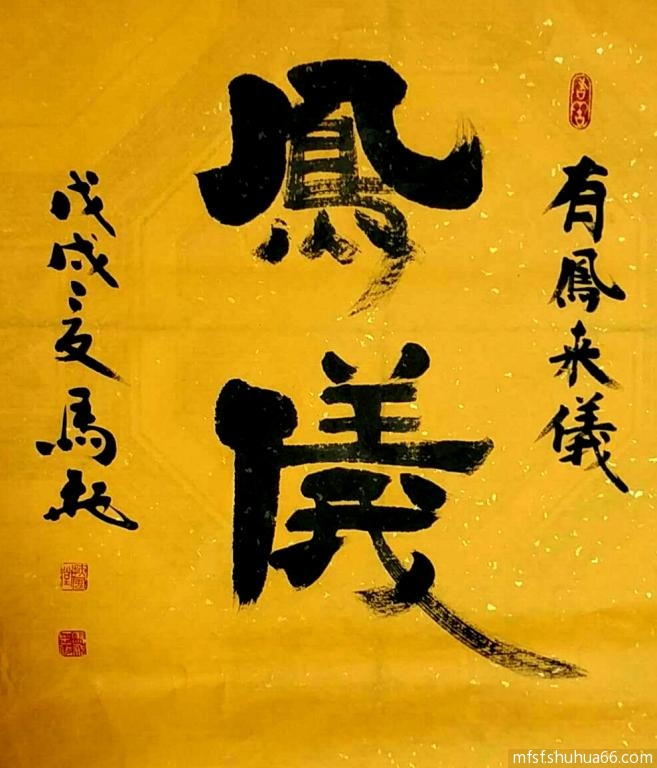 有鳳来儀
鳳儀
戊戌之夏馬
mfsfshuhua66.com